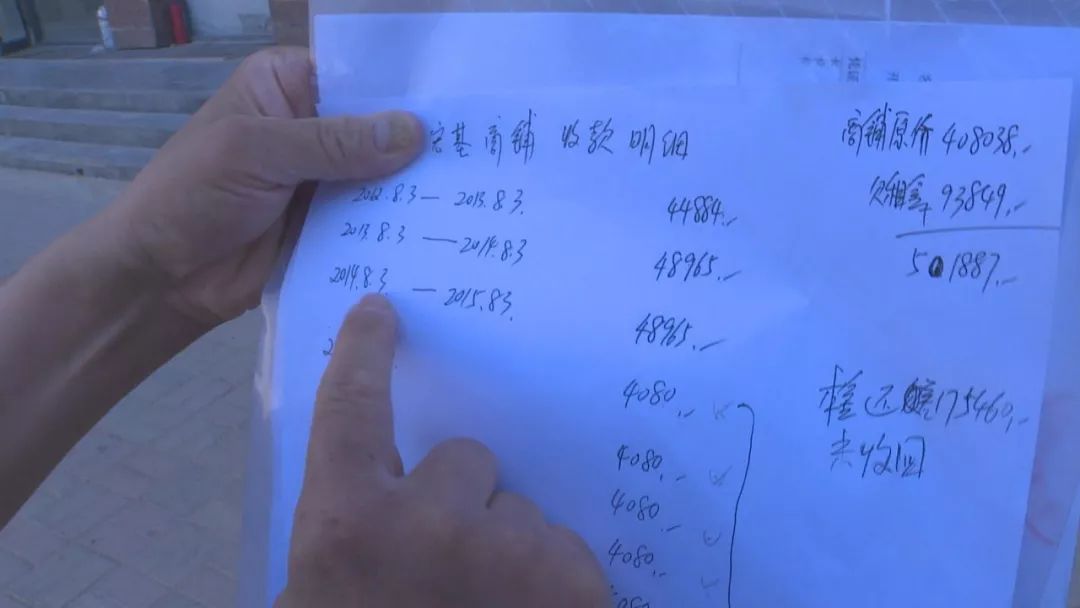 宏基商铺 收款明细
2012.8.3 — 2013.8.3. 44884.-
2013.8.3 — 2014.8.3 48965.-
2014.8.3 — 2015.8.3. 48965.-
4080.-
4080.-
4080.-
4080.-
商铺原价 408038.-
欠租金 93849.-
501887.-
还 175460.-
未收回